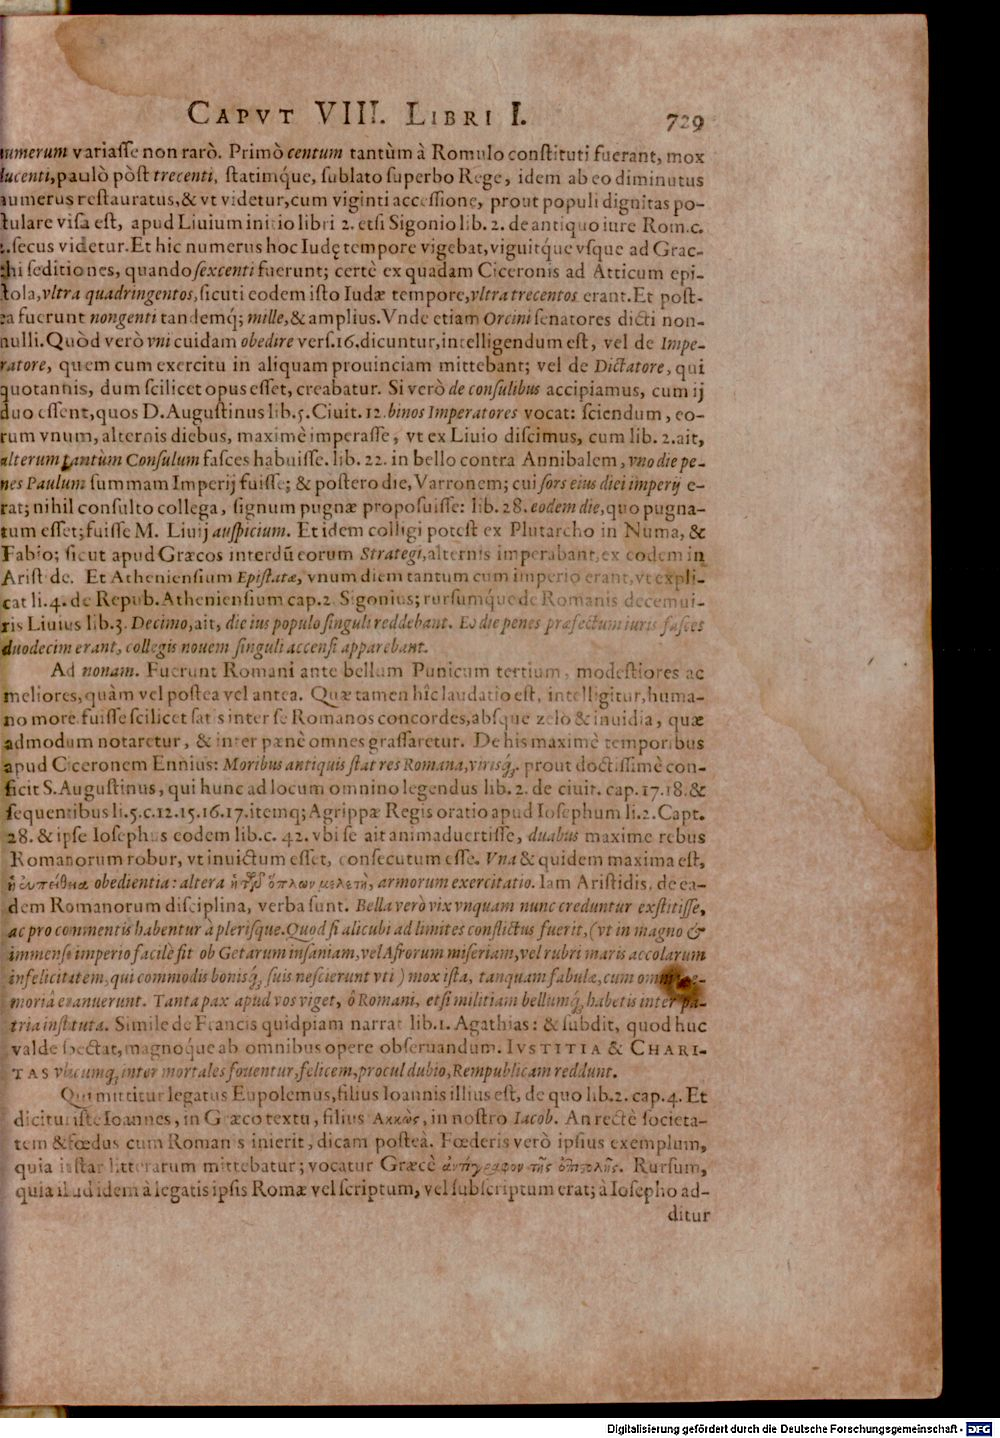 CAPVT VIII. LIBRI I. 729
numerum variasse non rarò. Primò centum tantùm à Romulo constituti fuerant, mox
ducenti, paulò pòst trecenti, statimque, sublato superbo Rege, idem ab eo diminutus
numerus restauratus, & vt videtur, cum viginti accessione, prout populi dignitas po-
stulare visa est, apud Liuium initio libri 2. etsi Sigonio lib. 2. de antiquo iure Rom. c.
2. secus videtur. Et hic numerus hoc Iudę tempore vigebat, viguitq́ue vsque ad Grac-
chi seditiones, quando sexcenti fuerunt; certè ex quadam Ciceronis ad Atticum epi-
stola, vltra quadringentos, sicuti eodem isto Iudæ tempore, vltra trecentos erant. Et post-
ea fuerunt nongenti tandemq́; mille, & amplius. Vnde etiam Orcini senatores dicti non-
nulli. Quòd verò vni cuidam obedire vers. 16. dicuntur, intelligendum est, vel de Impe-
ratore, quem cum exercitu in aliquam prouinciam mittebant; vel de Dictatore, qui
quotannis, dum scilicet opus esset, creabatur. Si verò de consulibus accipiamus, cum ij
duo essent, quos D. Augustinus lib. 5. Ciuit. 12. binos Imperatores vocat: sciendum, eo-
rum vnum, alternis diebus, maximè imperasse, vt ex Liuio discimus, cum lib. 2. ait,
alterum tantùm Consulum fasces habuisse. lib. 22. in bello contra Annibalem, vno die pe-
nes Paulum summam Imperij fuisse; & postero die, Varronem; cui sors eius diei imperij e-
rat; nihil consulto collega, signum pugnæ proposuisse: lib. 28. eodem die, quo pugna-
tum esset; fuisse M. Liuij auspicium. Et idem colligi potest ex Plutarcho in Numa, &
Fabio; sicut apud Græcos interdū eorum Strategi, alternis imperabant, ex eodem in
Aristide. Et Atheniensium Epistatæ, vnum diem tantum cum imperio erant, vt expli-
cat li. 4. de Repub. Atheniensium cap. 2. Sigonius; rursumq́ue de Romanis decemui-
ris Liuius lib. 3. Decimo, ait, die ius populo singuli reddebant. Eo die penes præfectum iuris fasces
duodecim erant, collegis nouem singuli accensi apparebant.
Ad nonam. Fuerunt Romani ante bellum Punicum tertium, modestiores ac
meliores, quàm vel postea vel antea. Quæ tamen hîc laudatio est, intelligitur, huma-
no more fuisse scilicet satis inter se Romanos concordes, absque zelo & inuidia, quæ
admodum notaretur, & inter pænè omnes grassaretur. De his maximè temporibus
apud Ciceronem Ennius: Moribus antiquis stat res Romana, virisq́;. prout doctissimè con-
ficit S. Augustinus, qui hunc ad locum omnino legendus lib. 2. de ciuit. cap. 17. 18. &
sequentibus li. 5. c. 12. 15. 16. 17. itemq́; Agrippæ Regis oratio apud Iosephum li. 2. Capt.
28. & ipse Iosephus eodem lib. c. 42. vbi se ait animaduertisse, duabus maxime rebus
Romanorum robur, vt inuictum esset, consecutum esse. Vna & quidem maxima est,
ἡ εὐπείθεια obedientia: altera ἡ τῶν ὅπλων μελετὴ, armorum exercitatio. Iam Aristidis, de ea-
dem Romanorum disciplina, verba sunt. Bella verò vix vnquam nunc creduntur exstitisse,
ac pro commentis habentur à plerisque. Quod si alicubi ad limites conflictus fuerit, (vt in magno &
immenso imperio facilè fit ob Getarum insaniam, vel Afrorum miseriam, vel rubri maris accolarum
infelicitatem, qui commodis bonisq́; suis nescierunt vti) mox ista, tanquam fabulæ, cum omni me-
moriâ euanuerunt. Tanta pax apud vos viget, ô Romani, etsi militiam bellumq́; habetis inter pa-
tria instituta. Simile de Francis quidpiam narrat lib. 1. Agathias: & subdit, quod huc
valde spectat, magnoq́ue ab omnibus opere obseruandum. IVSTITIA & CHARI-
TAS vbicumq́; inter mortales fouentur, felicem, procul dubio, Rempublicam reddunt.
Qui mittitur legatus Eupolemus, filius Ioannis illius est, de quo lib. 2. cap. 4. Et
dicitur iste Ioannes, in Græco textu, filius Ακκὼς, in nostro Iacob. An rectè societa-
tem & fœdus cum Romanis inierit, dicam posteà. Fœderis verò ipsius exemplum,
quia instar litterarum mittebatur; vocatur Græcè ἀντίγραφον τῆς ἐπιστολῆς. Rursum,
quia illud idem à legatis ipsis Romæ vel scriptum, vel subscriptum erat; à Iosepho ad-
ditur
Digitalisierung gefördert durch die Deutsche Forschungsgemeinschaft - DFG